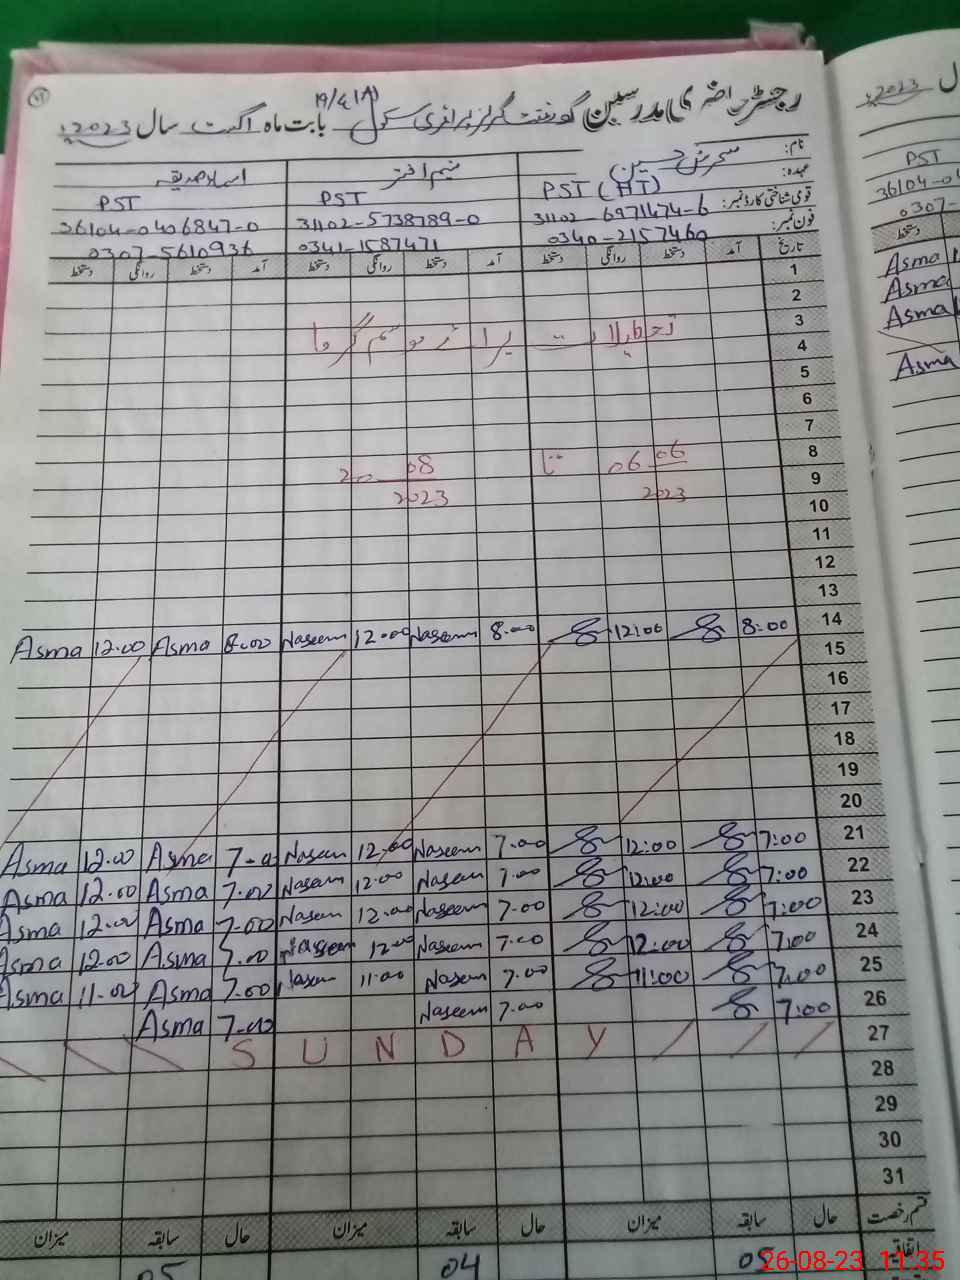 رجسٹر حاضری مدرسین گورنمنٹ گرلز پرائمری سکول 19/4.1A بابت ماہ اگست سال 2023ء
نام: سحرش حسین نسیم اختر اسماء صدیقہ
عہدہ: PST (HT) PST PST
قومی شناختی کارڈ نمبر: 31102-6971474-6 31102-5738789-0 36104-0406847-0
فون نمبر: 0340-2157460 0341-1587471 0307-5610936
تاریخ آمد دستخط روانگی دستخط آمد دستخط روانگی دستخط آمد دستخط روانگی دستخط
1
2
3
تعطیلات برائے موسم گرما
4
5
6
7
8
06-06-2023 تا 20-08-2023
9
10
11
12
13
14 8:00 12:00 8.00 Naseem 12.00 Naseem 8.00 Asma 12.00 Asma
15
16
17
18
19
20
21 7:00 12:00 7.00 Naseem 12.00 Naseem 7.0 Asma 12.00 Asma
22 7:00 12:00 7.00 Naseem 12.00 Naseem 7.00 Asma 12.00 Asma
23 7:00 12:00 7.00 Naseem 12.00 Naseem 7.00 Asma 12.00 Asma
24 7:00 12:00 7.00 Naseem 12.00 Naseem 7.00 Asma 12.00 Asma
25 7:00 11:00 7.00 Naseem 11.00 Naseem 7.00 Asma 11.00 Asma
26 7:00 7.00 Naseem 7.00 Asma
27 SUNDAY
28
29
30
31
قسم رخصت حال سابقہ میزان حال سابقہ میزان حال سابقہ میزان
اتفاقیہ 05 04 05
26-08-23 11:35
2023ء
PST
36104-04
0307-
دستخط
Asma
Asma
Asma
Asma